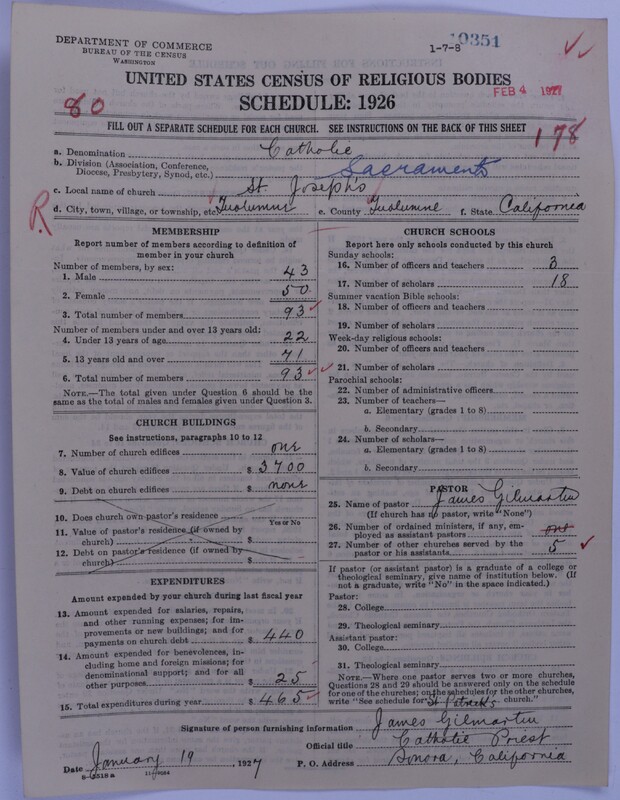 DEPARTMENT OF COMMERCE
BUREAU OF THE CENSUS
WASHINGTON
1-7-8
10351
UNITED STATES CENSUS OF RELIGIOUS BODIES
FEB 4 1927
SCHEDULE: 1926
80
FILL OUT A SEPARATE SCHEDULE FOR EACH CHURCH. SEE INSTRUCTIONS ON THE BACK OF THIS SHEET
178
a. Denomination Catholic
b. Division (Association, Conference, Diocese, Presbytery, Synod, etc.) Sacramento
c. Local name of church St Joseph's
R
d. City, town, village, or township, etc. Tuolumne e. County Tuolumne f. State California
MEMBERSHIP
Report number of members according to definition of
member in your church
Number of members, by sex:
1. Male 43
2. Female 50
3. Total number of members 93
Number of members under and over 13 years old:
4. Under 13 years of age 22
5. 13 years old and over 71
6. Total number of members 93
NOTE.—The total given under Question 6 should be
same as the total of males and females given under Question 3.
CHURCH BUILDINGS
See instructions, paragraphs 10 to 12
7. Number of church edifices one
8. Value of church edifices $ 3700
9. Debt on church edifices $ none
10. Does church own pastor's residence
Yes or No
11. Value of pastor's residence (if owned by
church) $
12. Debt on pastor's residence (if owned by
church) $
EXPENDITURES
Amount expended by your church during last fiscal year
13. Amount expended for salaries, repairs,
and other running expenses; for im-
provements or new buildings; and for
payments on church debt $ 440
14. Amount expended for benevolences, in-
cluding home and foreign missions; for
denominational support; and for all
other purposes $ 25
15. Total expenditures during year $ 465
CHURCH SCHOOLS
Report here only schools conducted by this church
Sunday schools:
16. Number of officers and teachers 3
17. Number of scholars 18
Summer vacation Bible schools:
18. Number of officers and teachers
19. Number of scholars
Week-day religious schools:
20. Number of officers and teachers
21. Number of scholars
Parochial schools:
22. Number of administrative officers
23. Number of teachers—
a. Elementary (grades 1 to 8)
b. Secondary
24. Number of scholars—
a. Elementary (grades 1 to 8)
b. Secondary
PASTOR
25. Name of pastor James Gilmartin
(If church has no pastor, write "None")
26. Number of ordained ministers, if any, em-
ployed as assistant pastors one
27. Number of other churches served by the
pastor or his assistants 5
If pastor (or assistant pastor) is a graduate of a college or
theological seminary, give name of institution below. (If
not a graduate, write "No" in the space indicated.)
Pastor:
28. College
29. Theological seminary
Assistant pastor:
30. College
31. Theological seminary
NOTE.—Where one pastor serves two or more churches,
Questions 28 and 29 should be answered only on the schedule
for one of the churches; on the schedules for the other churches,
write "See schedule for St Patrick's church."
Signature of person furnishing information James Gilmartin
Official title Catholic Priest
Date January 19, 1927 P. O. Address Sonora, California